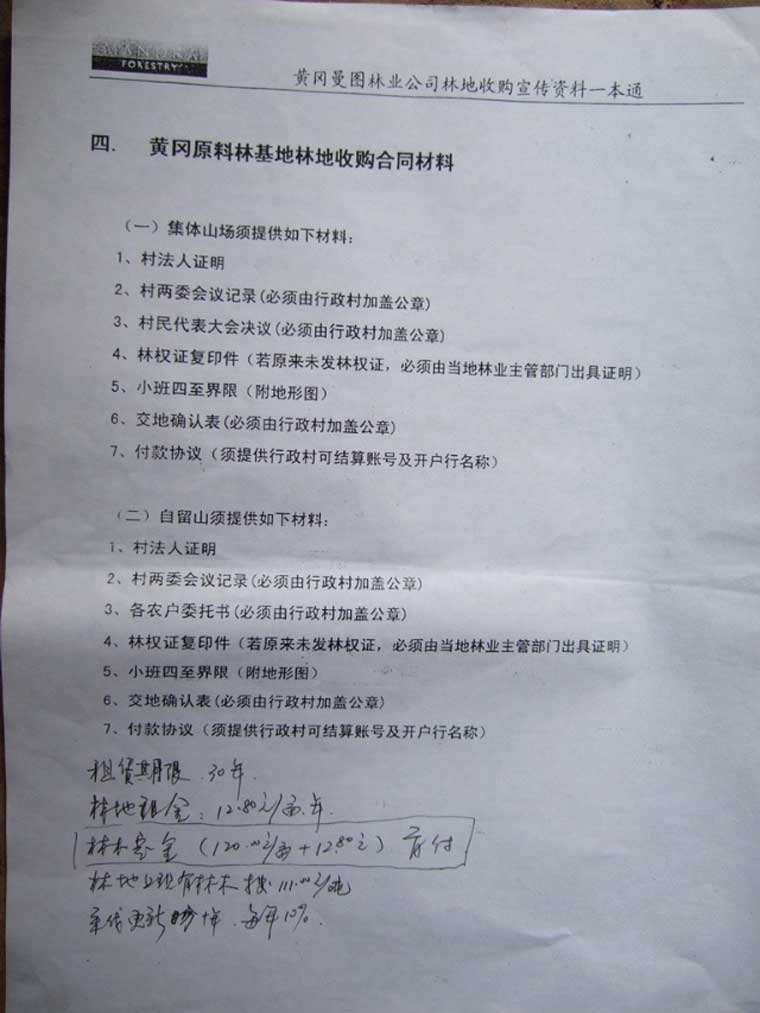 FORESTRY
黄冈曼图林业公司林地收购宣传资料一本通
四. 黄冈原料林基地林地收购合同材料
（一）集体山场须提供如下材料:
1、村法人证明
2、村两委会议记录(必须由行政村加盖公章)
3、村民代表大会决议(必须由行政村加盖公章)
4、林权证复印件（若原来未发林权证，必须由当地林业主管部门出具证明）
5、小班四至界限（附地形图）
6、交地确认表(必须由行政村加盖公章)
7、付款协议（须提供行政村可结算账号及开户行名称）
（二）自留山须提供如下材料:
1、村法人证明
2、村两委会议记录(必须由行政村加盖公章)
3、各农户委托书(必须由行政村加盖公章)
4、林权证复印件（若原来未发林权证，必须由当地林业主管部门出具证明）
5、小班四至界限（附地形图）
6、交地确认表(必须由行政村加盖公章)
7、付款协议（须提供行政村可结算账号及开户行名称）
租赁期限 30年.
林地租金: 12.80元/亩.年.
林木 金 (120.00元/亩+12.80元) 付
林地上现有林木按 111.00元/吨
更新 年. 每年10%.